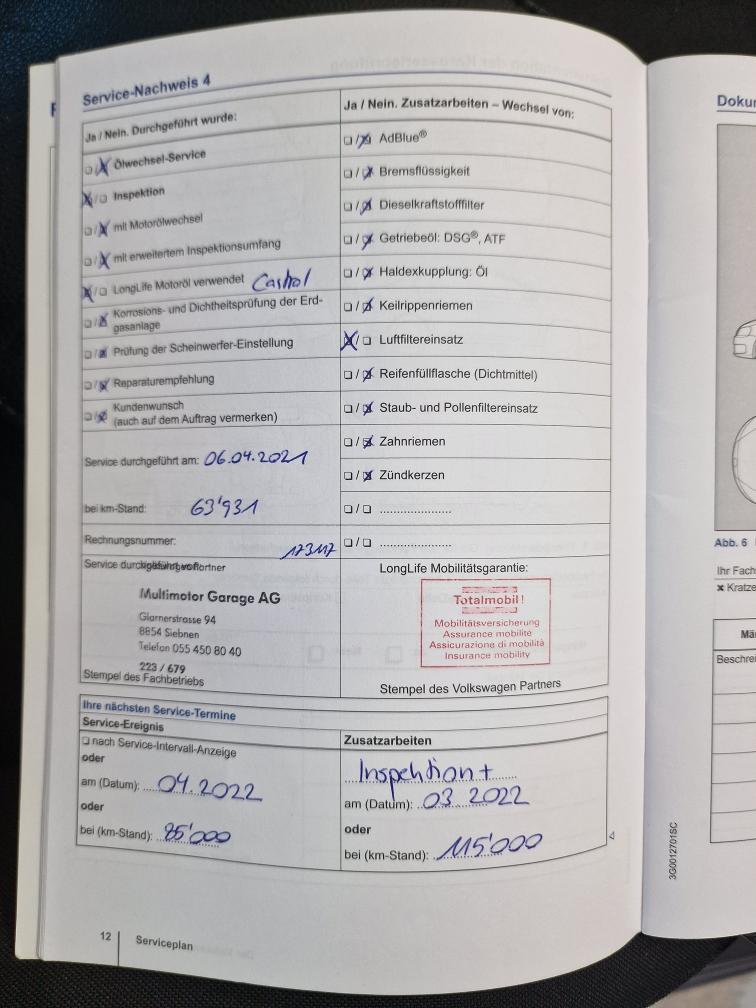 Service-Nachweis 4
Ja / Nein. Durchgeführt wurde:
Ölwechsel-Service
Inspektion
mit Motorölwechsel
mit erweitertem Inspektionsumfang
LongLife Motoröl verwendet
Korrosions- und Dichtheitsprüfung der Erd-
gasanlage
Prüfung der Scheinwerfer-Einstellung
Reparaturempfehlung
Kundenwunsch
(auch auf dem Auftrag vermerken)
Service durchgeführt am: 06.04.2021
bei km-Stand: 63'931
Rechnungsnummer: 17317
Service
Multimotor Garage AG
Glarnerstrasse 94
8854 Siebnen
Telefon 055 450 80 40
223 / 679
Stempel des Fachbetriebs
Ja / Nein. Zusatzarbeiten – Wechsel von:
AdBlue®
Bremsflüssigkeit
Dieselkraftstofffilter
Getriebeöl: DSG®, ATF
Haldexkupplung: Öl
Keilrippenriemen
Luftfiltereinsatz
Reifenfüllflasche (Dichtmittel)
Staub- und Pollenfiltereinsatz
Zahnriemen
Zündkerzen
LongLife Mobilitätsgarantie:
Totalmobil!
Mobilitätsversicherung
Assurance mobilité
Assicurazione di mobilità
Insurance mobility
Stempel des Volkswagen Partners
Ihre nächsten Service-Termine
Service-Ereignis
nach Service-Intervall-Anzeige
oder
am (Datum): 04.2022
oder
bei (km-Stand): 85'000
Zusatzarbeiten
Inspektion +
am (Datum): 03.2022
oder
bei (km-Stand): 115'000
12 Serviceplan
Abb. 6
Ihr Fach
Kratze
Beschrei
3G0012701SC